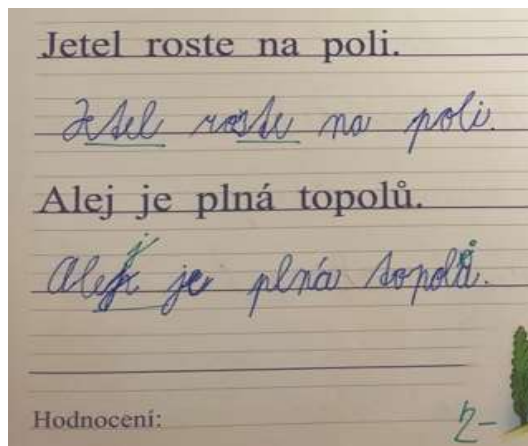 Jetel roste na poli.
Jetel roste na poli.
Alej je plná topolů.
j
Alej je plná topolů.
Hodnocení: 2-